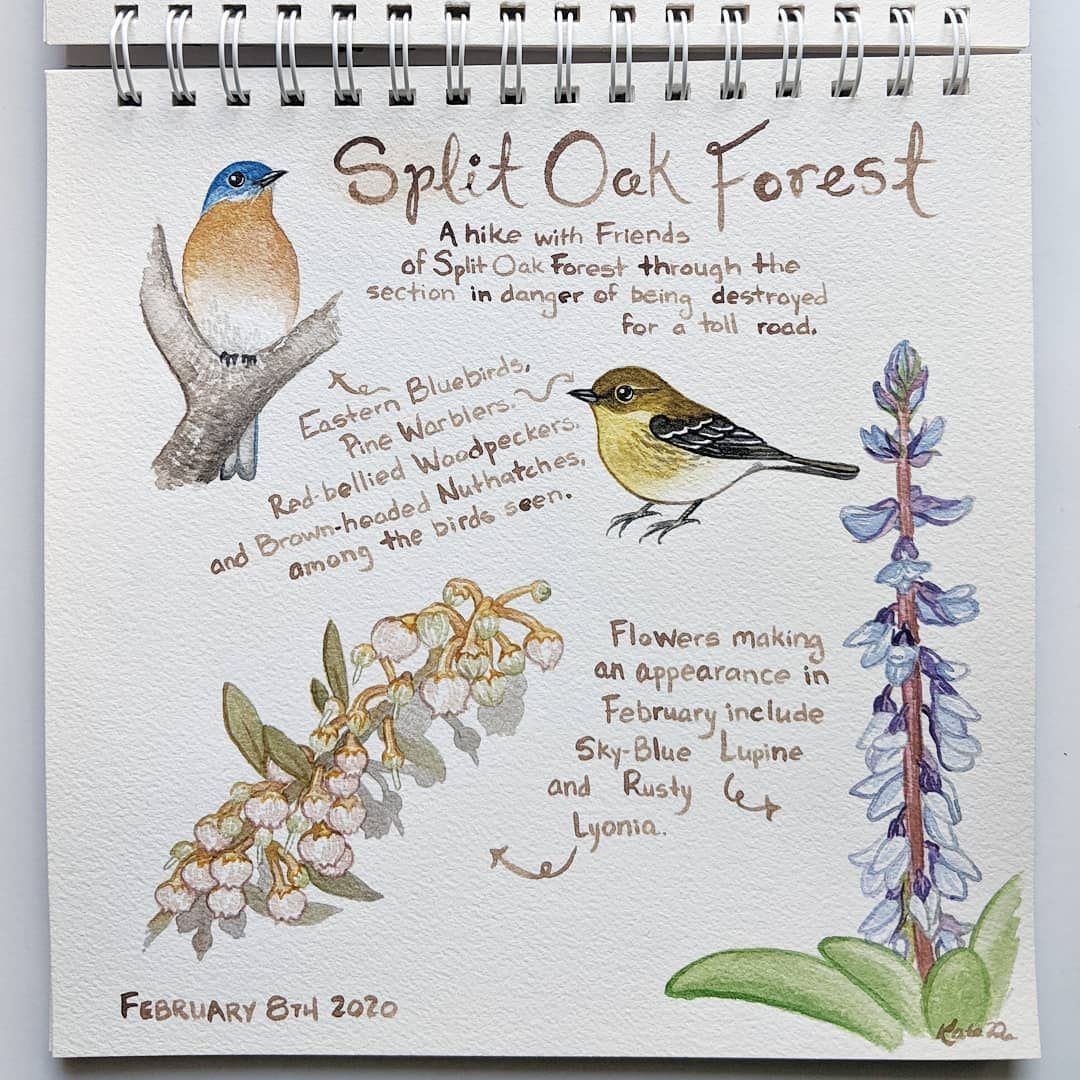 Split Oak Forest
A hike with Friends
of Split Oak Forest through the
section in danger of being destroyed
for a toll road.
Eastern Bluebirds,
Pine Warblers,
Red-bellied Woodpeckers,
and Brown-headed Nuthatches,
among the birds seen.
Flowers making
an appearance in
February include
Sky-Blue Lupine
and Rusty
Lyonia.
FEBRUARY 8TH 2020